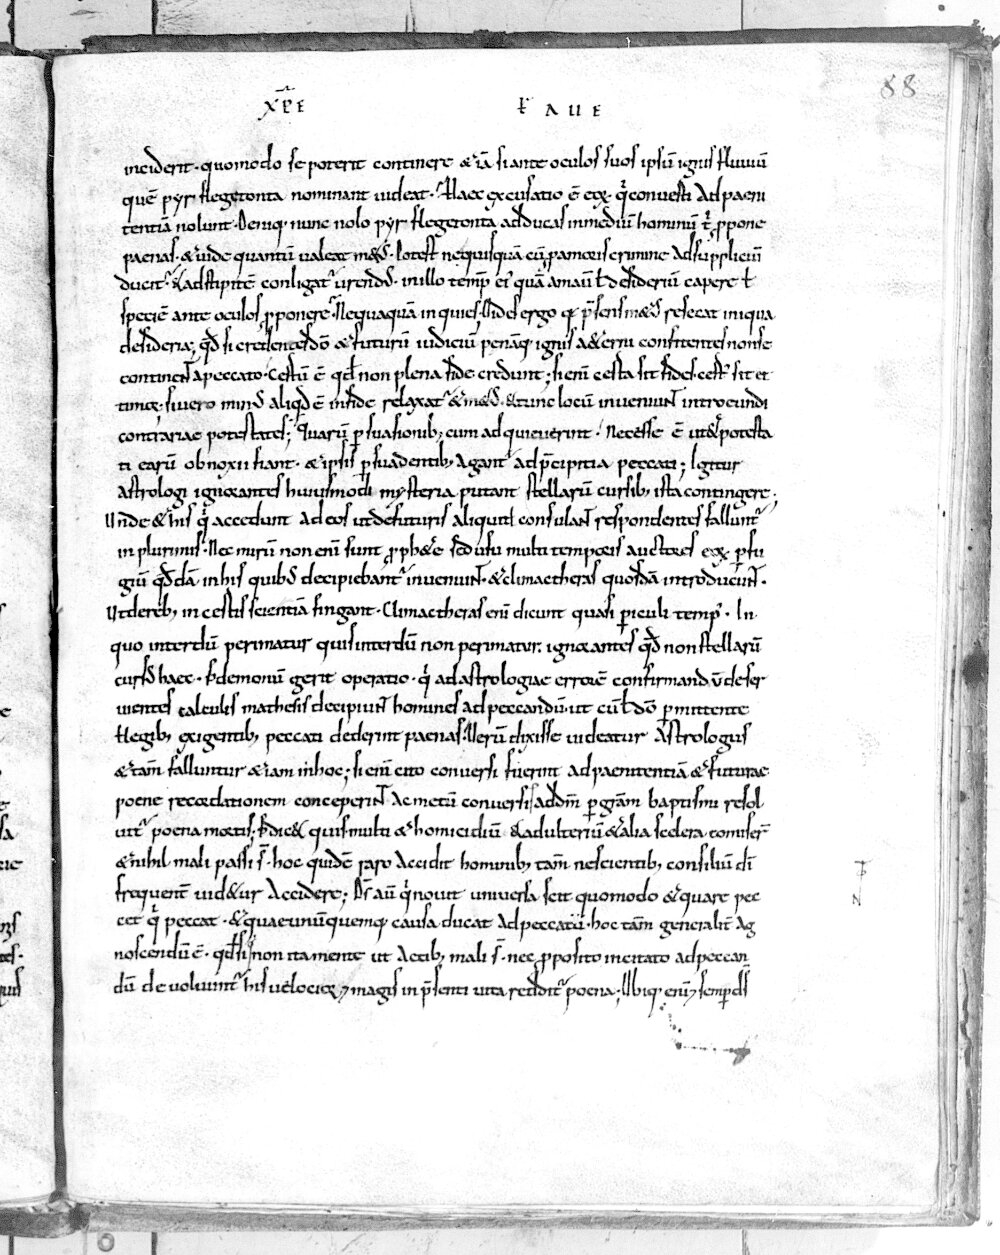 88
XPE F AUE
inciderit · quomodo se poterit continere & iā si ante oculos suos ipsū ignis fluuiū
quē pyr flegetonta nominant uideat · Haec excusatio ē eoꝝ · q̄ conuerti ad paeni
tentiā nolunt · Deniq; nunc nolo pyr flegetonta adducas in mediū hominū ꝓpone
paenas · & uide quantū ualeat met᾽ · Potest nequisquā cū pamoris crimine ad suppliciū
ducit᾽ & ad stipitē conligat᾽ urend᾽ · in illo temp̄ ei᾽ quā amauit desideriū capere ł
speciē ante oculos ꝓponere · Nequaquā inquies · Uides ergo qđ p̄sens met᾽ resecat iniqua
desideria; qđ si credentes dō & futurū iudiciū penāq; ignis aeterni confitentes non se
continent a peccato · Certū ē qđ non plena fide credunt; si enī certa sit fides · cert᾽ sit et
timor; si uero min᾽ aliqđ ē in fide relaxat᾽ & met᾽ · & tunc locū inueniunt introeundi
contrariae potestates; Quarū p̱suasionib; cum adquieuerint · Necesse ē ut & potesta
ti earū obnoxii fiant · & ipsis p̱suadentib; agant᾽ ad p̄cipitia peccati; Igitur
astrologi ignorantes huiusmodi mysteria putant stellarū cursib; ista contingere;
Unde & his q̄ accedunt ad eos ut de futuris aliquid consulant respondentes fallunt᾽
in plurimis · Nec mirū non enī sunt ꝓphetae sed usu multi temporis auctores eoꝝ p̱fu
giū qđdā in his quib᾽ decipiebant᾽ inueniunt · & climactheras quosdā introducunt ·
Ut de reb; incertis scientiā fingant · Climactheras enī dicunt quasi p̱iculi temp᾽ · In
quo interdū perimatur quis interdū non perimatur · ignorantes qđ non stellarū
curs᾽ haec · s; demonū gerit operatio · q̄ ad astrologiae errorē confirmandū deser
uientes calculis mathesis decipiunt homines ad peccandū · ut cū dō p̱mittente
ł legib; exigentib; peccati dederint paenas · Uerū dixisse uideatur astrologus
& tam̄ falluntur & iam in hoc; si enī cito conuersi fuerint ad paenitentiā & futurae
poene recordationem conceperint ac metū conuersis ad dn̄m p̱ gr̄am baptismi resol
uit᾽ poena mortis; S; dic& quis · multi & homicidiū & adulteriū & alia scelera comiser̄
& nihil mali passi s̄ · hoc quidē raro accidit hominib; tam̄ nescientib; consiliū dī
frequent̄ uidetur accidere; Ds̄ aū q̄ nouit uniuersa scit quomodo & quare pec
cet q̄ peccat · & quae unūquemq; causa ducat ad peccatū · hoc tam̄ generalit̄ ag
noscendū ē · qđ si non ita mente ut actib; mali s̄ · nec ꝓposito incitato ad peccan
dū deuoluunt᾽ · his uelocior & magis in p̄senti uita reddit᾽ poena; Ubiq; enī & semp̱ ds̄